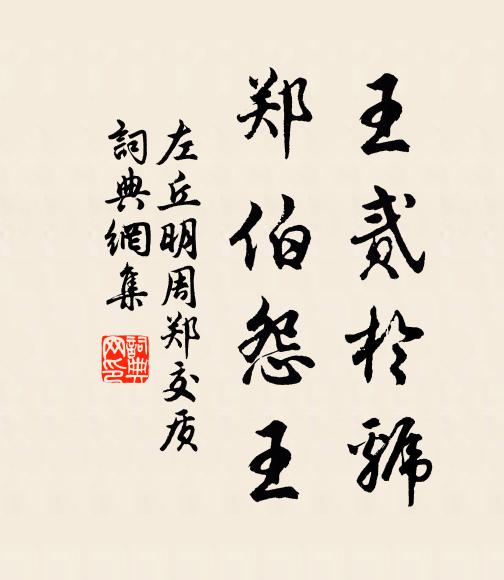 王贰於虢
郑伯怨王
左丘明周郑交质
詞典網集
詞典网印